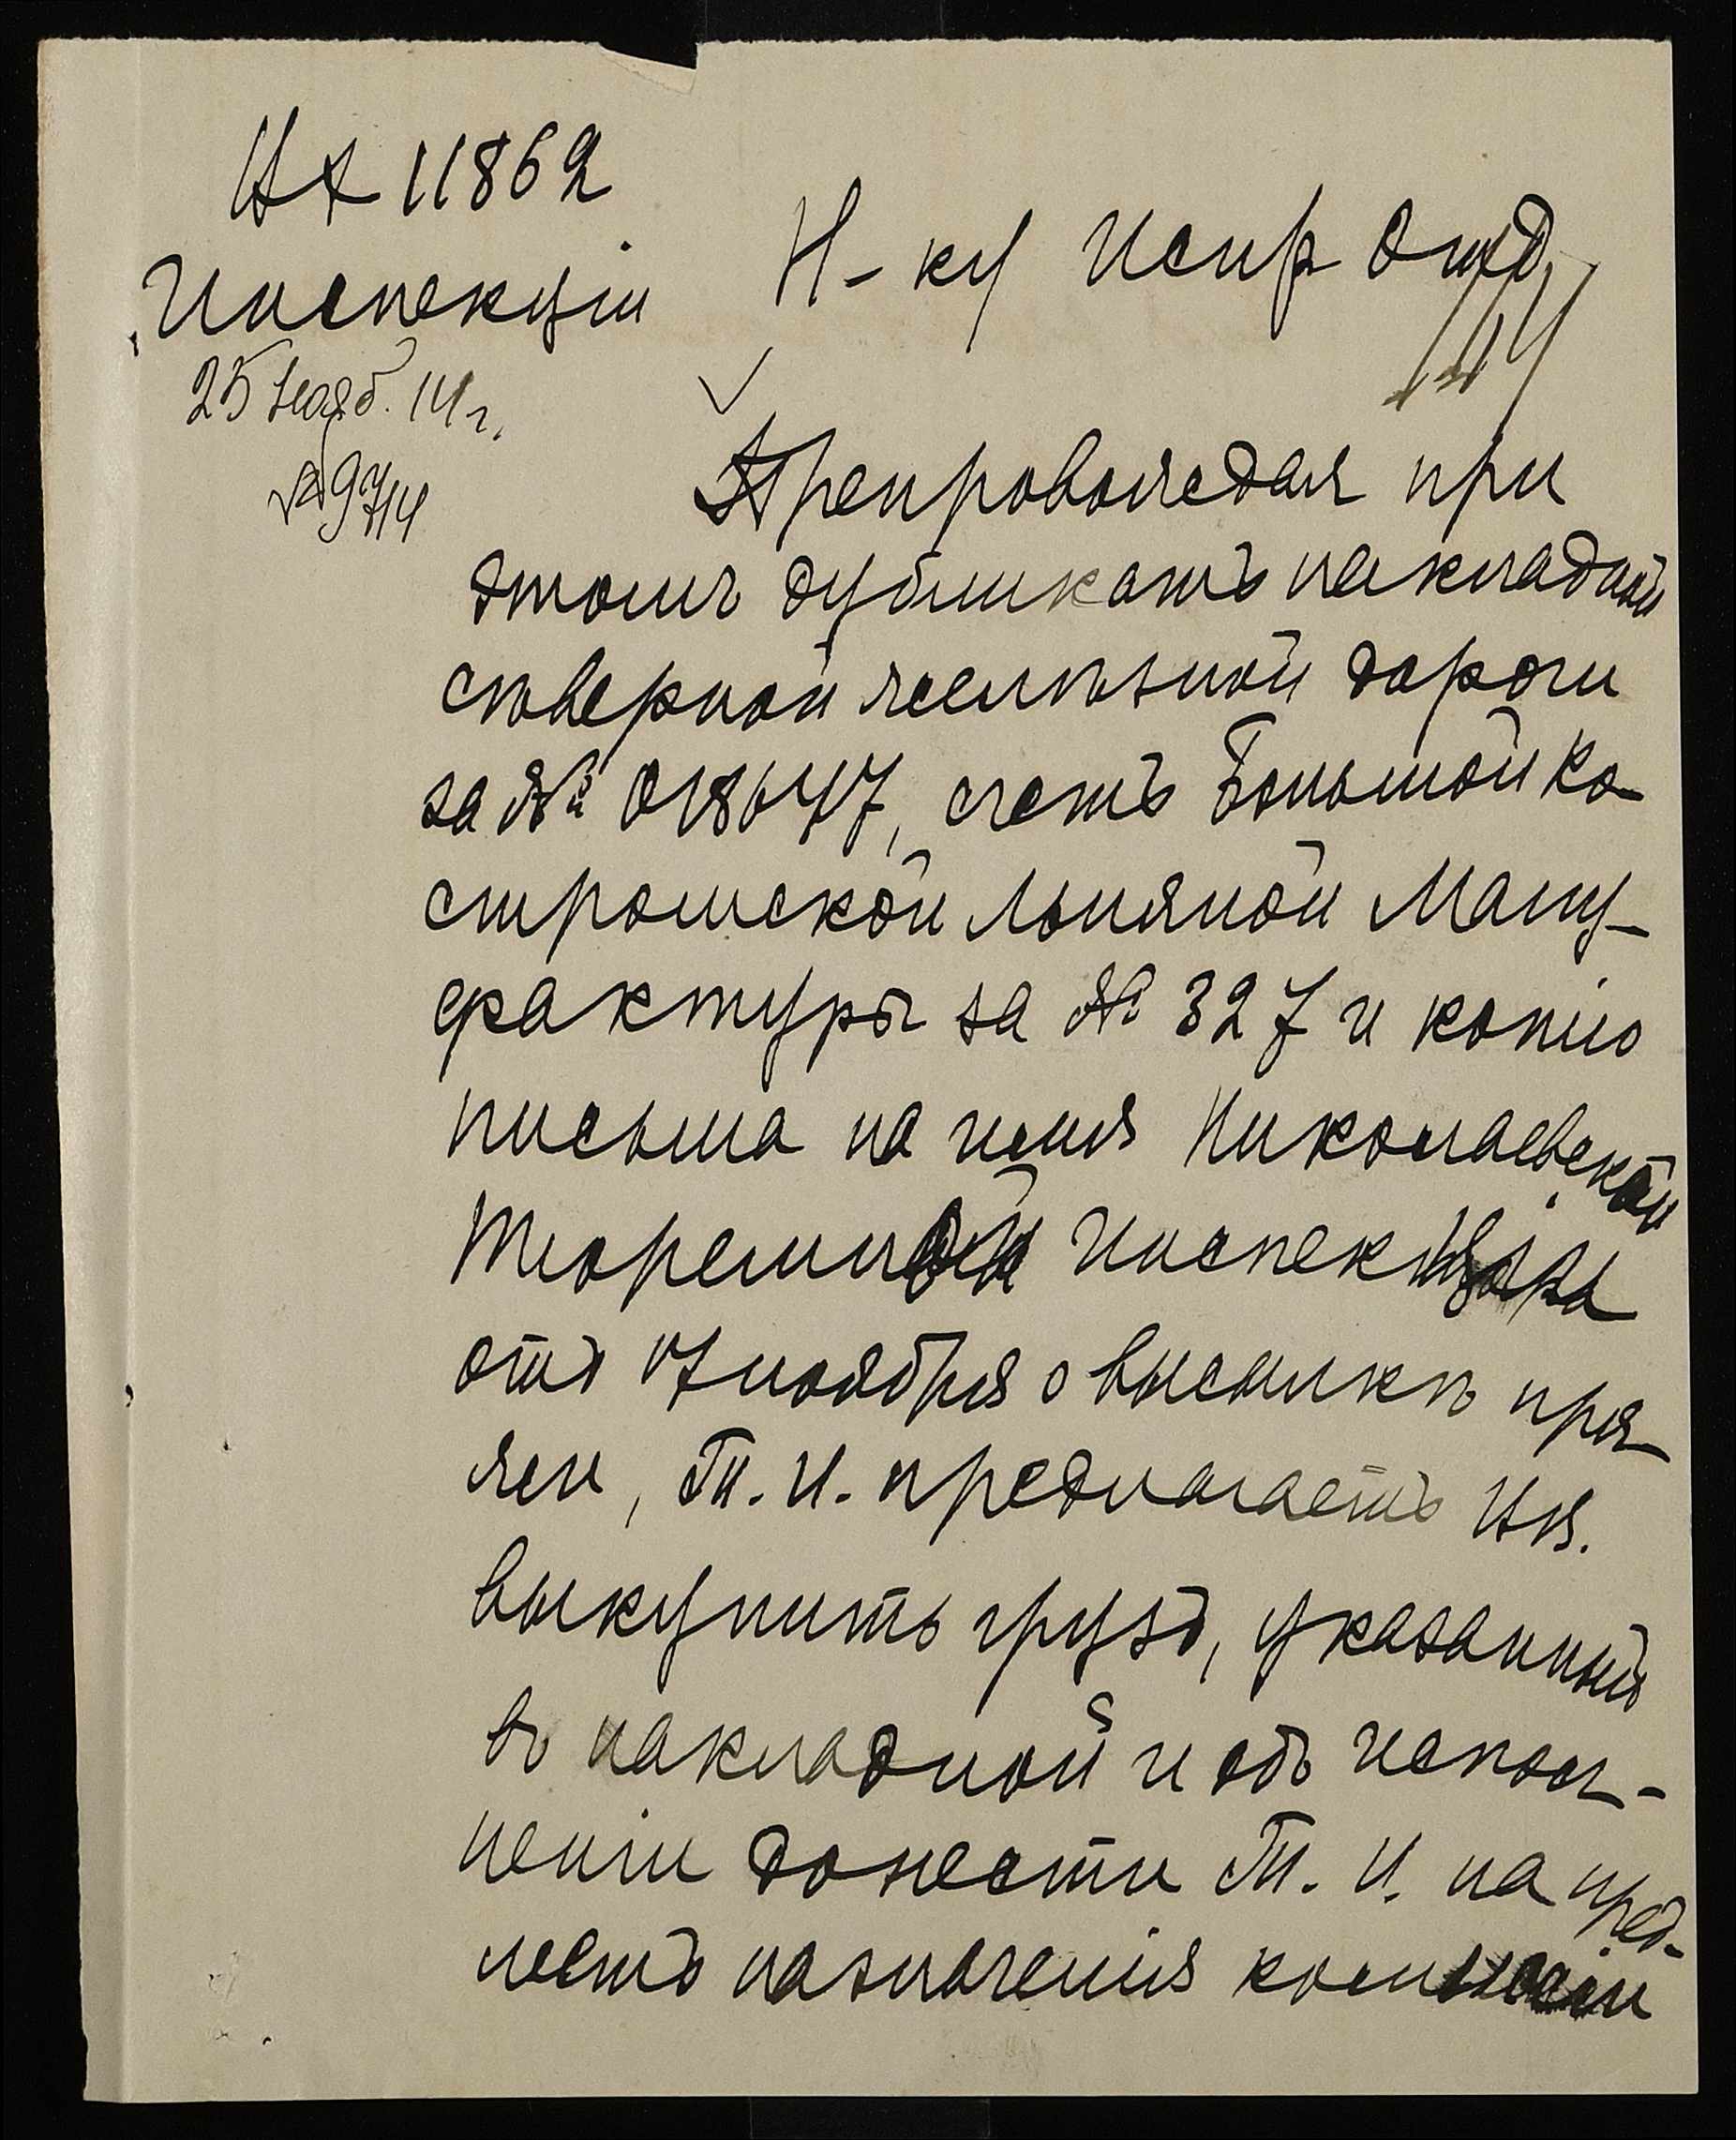 Вх 11862
Инспекціи
25 Нояб. 14 г.
№ 97/14
Н-ку Испр Отд
Препровождая при
этомъ дубликатъ накладной
сѣверной желѣзной дороги
за № 018647, счетъ Большой Ко-
стромской Льняной Ману-
фактуры за № 327 и копію
письма на имя Николаевской
Тюремной Инспекціи
отъ 17 ноября о высылкѣ пря-
жи, Т. И. предлагаетъ
выкупить грузъ, указанный
въ накладной и объ испол-
неніи донести Т. И. на пред-
метъ назначенія комиссіи